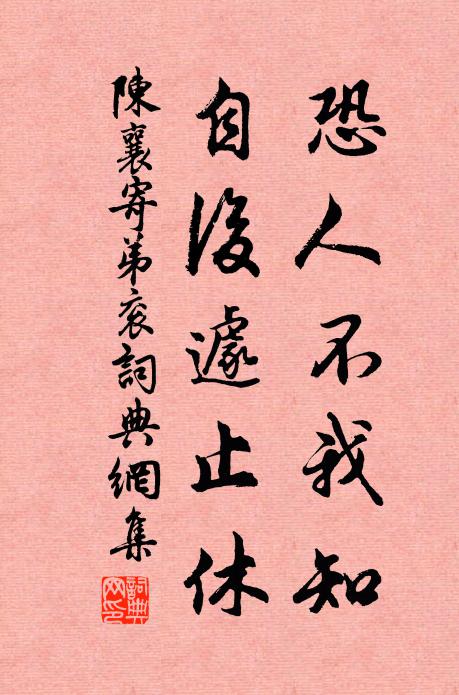 恐人不我知
自後遽止休
陳襄寄弟衮詞典網集
詞典網印